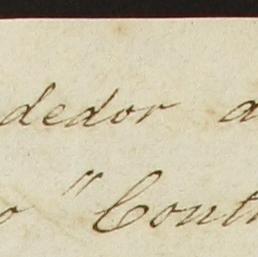 dedor a
o "Cont